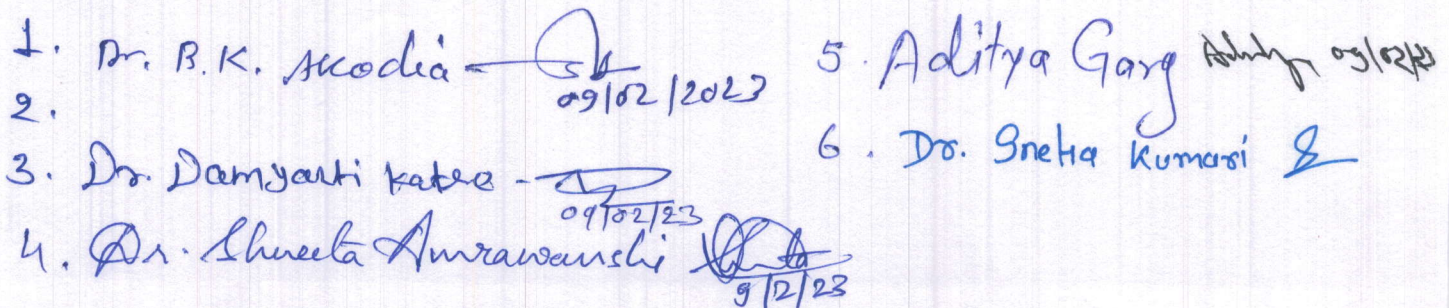 1. Dr. B.K. Akodia - 09/02/2023
2.
3. Dr. Damyanti Katre - 09/02/23
4. Dr. Shweta Amrawanshi 9/2/23
5. Aditya Garg 09/02/23
6. Dr. Sneha Kumari